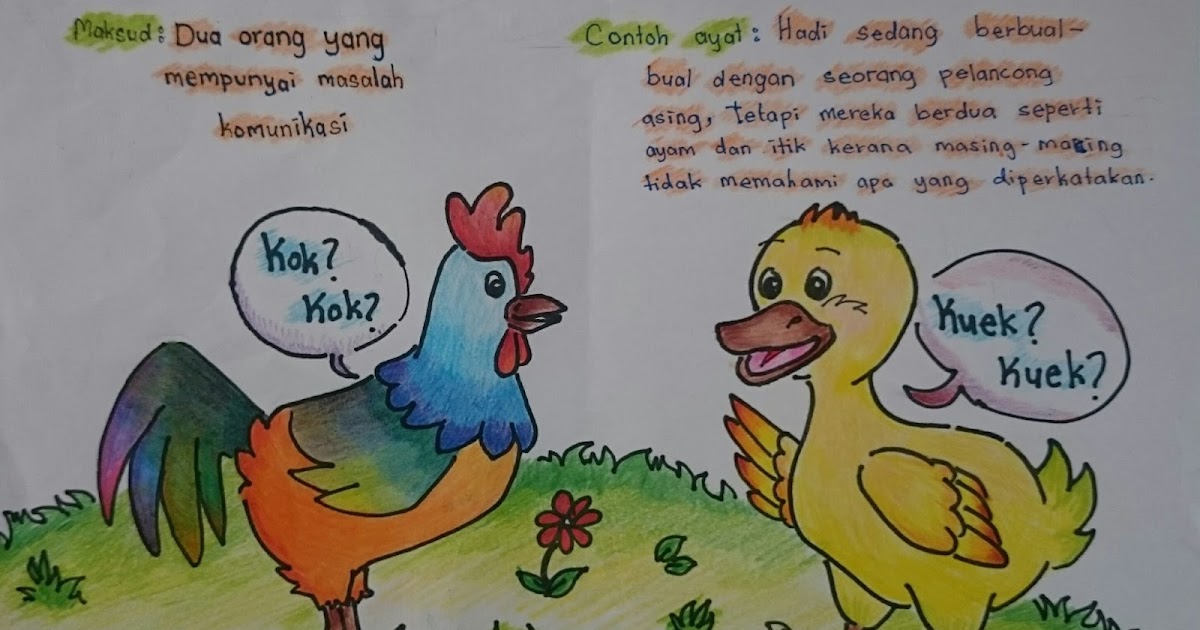 Maksud: Dua orang yang
mempunyai masalah
komunikasi
Contoh ayat: Hadi sedang berbual-
bual dengan seorang pelancong
asing, tetapi mereka berdua seperti
ayam dan itik kerana masing-masing
tidak memahami apa yang diperkatakan.
Kok?
Kok?
Kuek?
Kuek?